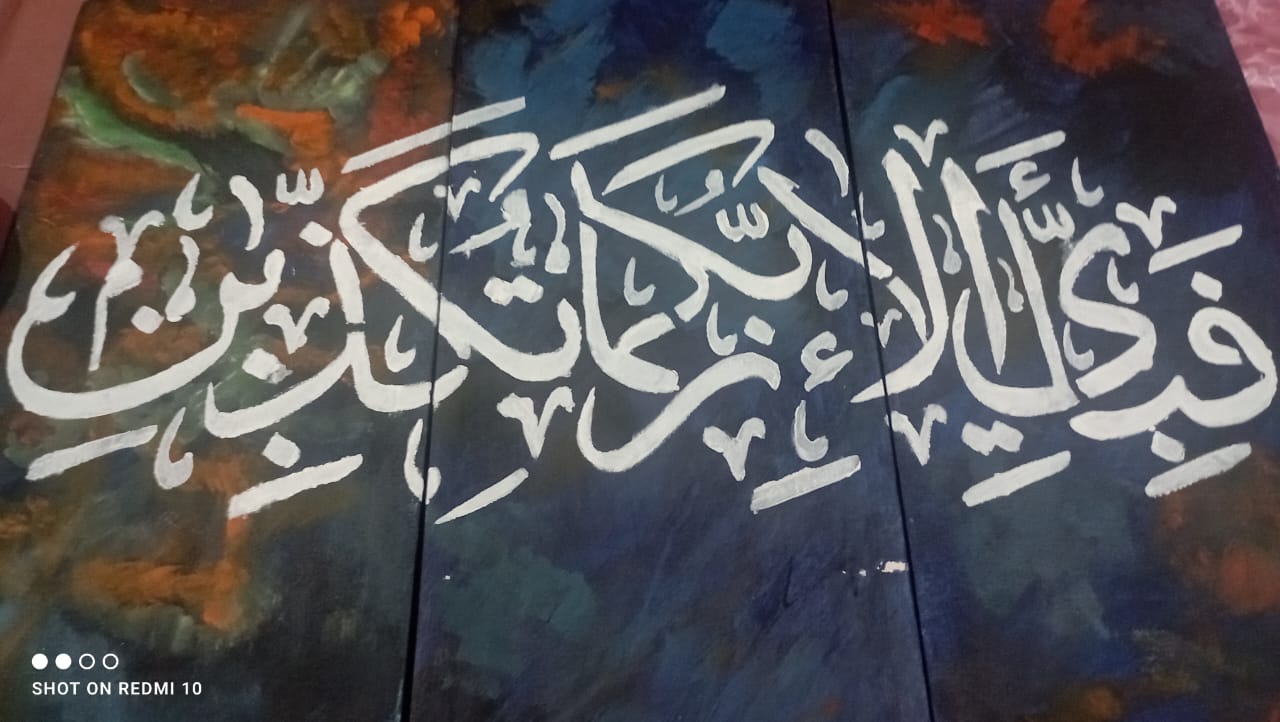 فَبِأَيِّ آلَاءِ رَبِّكُمَا تُكَذِّبَانِ
SHOT ON REDMI 10